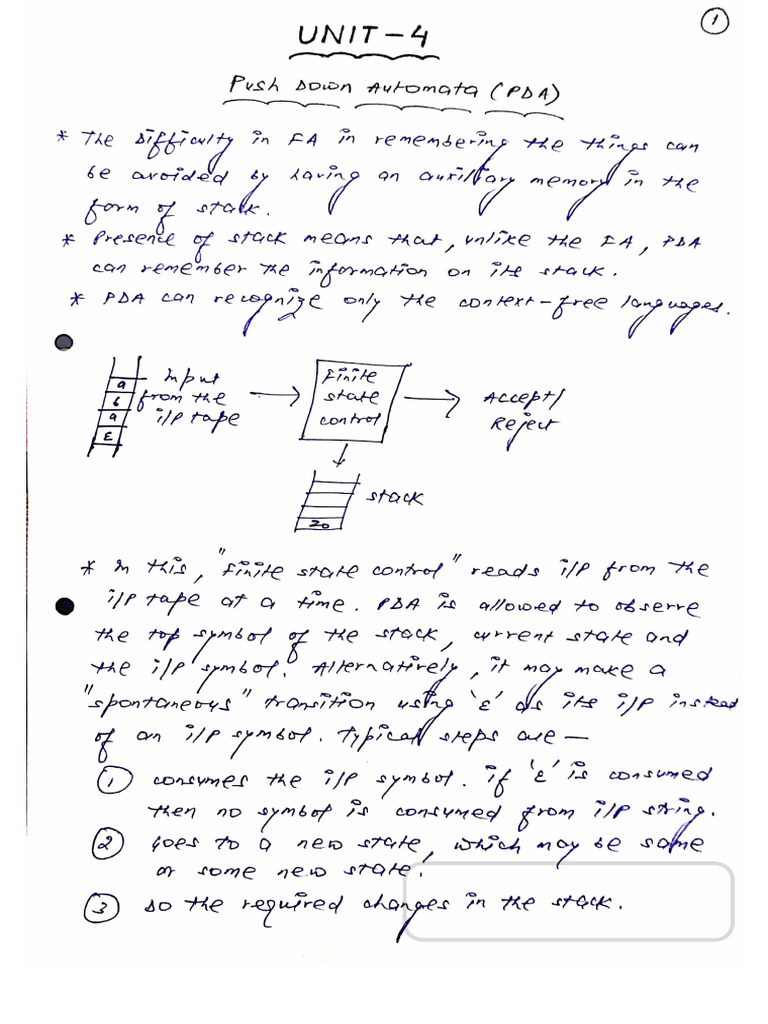 1
UNIT-4
Push Down Automata (PDA)
* The difficulty in FA in remembering the things can
be avoided by having an auxiltary memory in the
form of stack.
* Presence of stack means that, unlike the FA, PDA
can remember the information on its stack.
* PDA can recognize only the context-free languages.
a
b
a
ε
Input
from the
i/p tape
Finite
state
control
Accept/
Reject
stack
Z0
* In this, "Finite state control" reads i/p from the
i/p tape at a time. PDA is allowed to observe
the top symbol of the stack, current state and
the i/p symbol. Alternatively, it may make a
"spontaneous" transition using 'ε' as its i/p instead
of an i/p symbol. Typical steps are —
1 consumes the i/p symbol. if 'ε' is consumed
then no symbol is consumed from i/p string.
2 Goes to a new state, which may be same
or some new state.
3 Do the required changes in the stack.